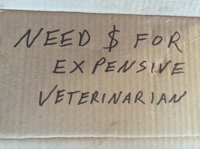 NEED $ FOR
EXPENSIVE
VETERINARIAN